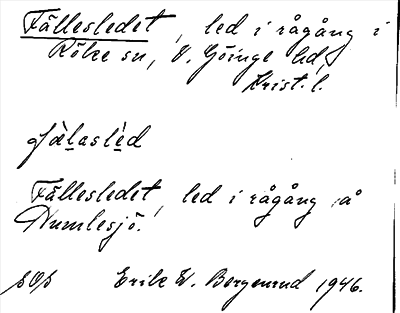 Fällesledet, led i rågång i
Röke sn, V. Göinge hd,
Krist. l.
fæ̀laslèd
Fällesledet, led i rågång å
Humlesjö.
Erik W. Bergenrud 1946.